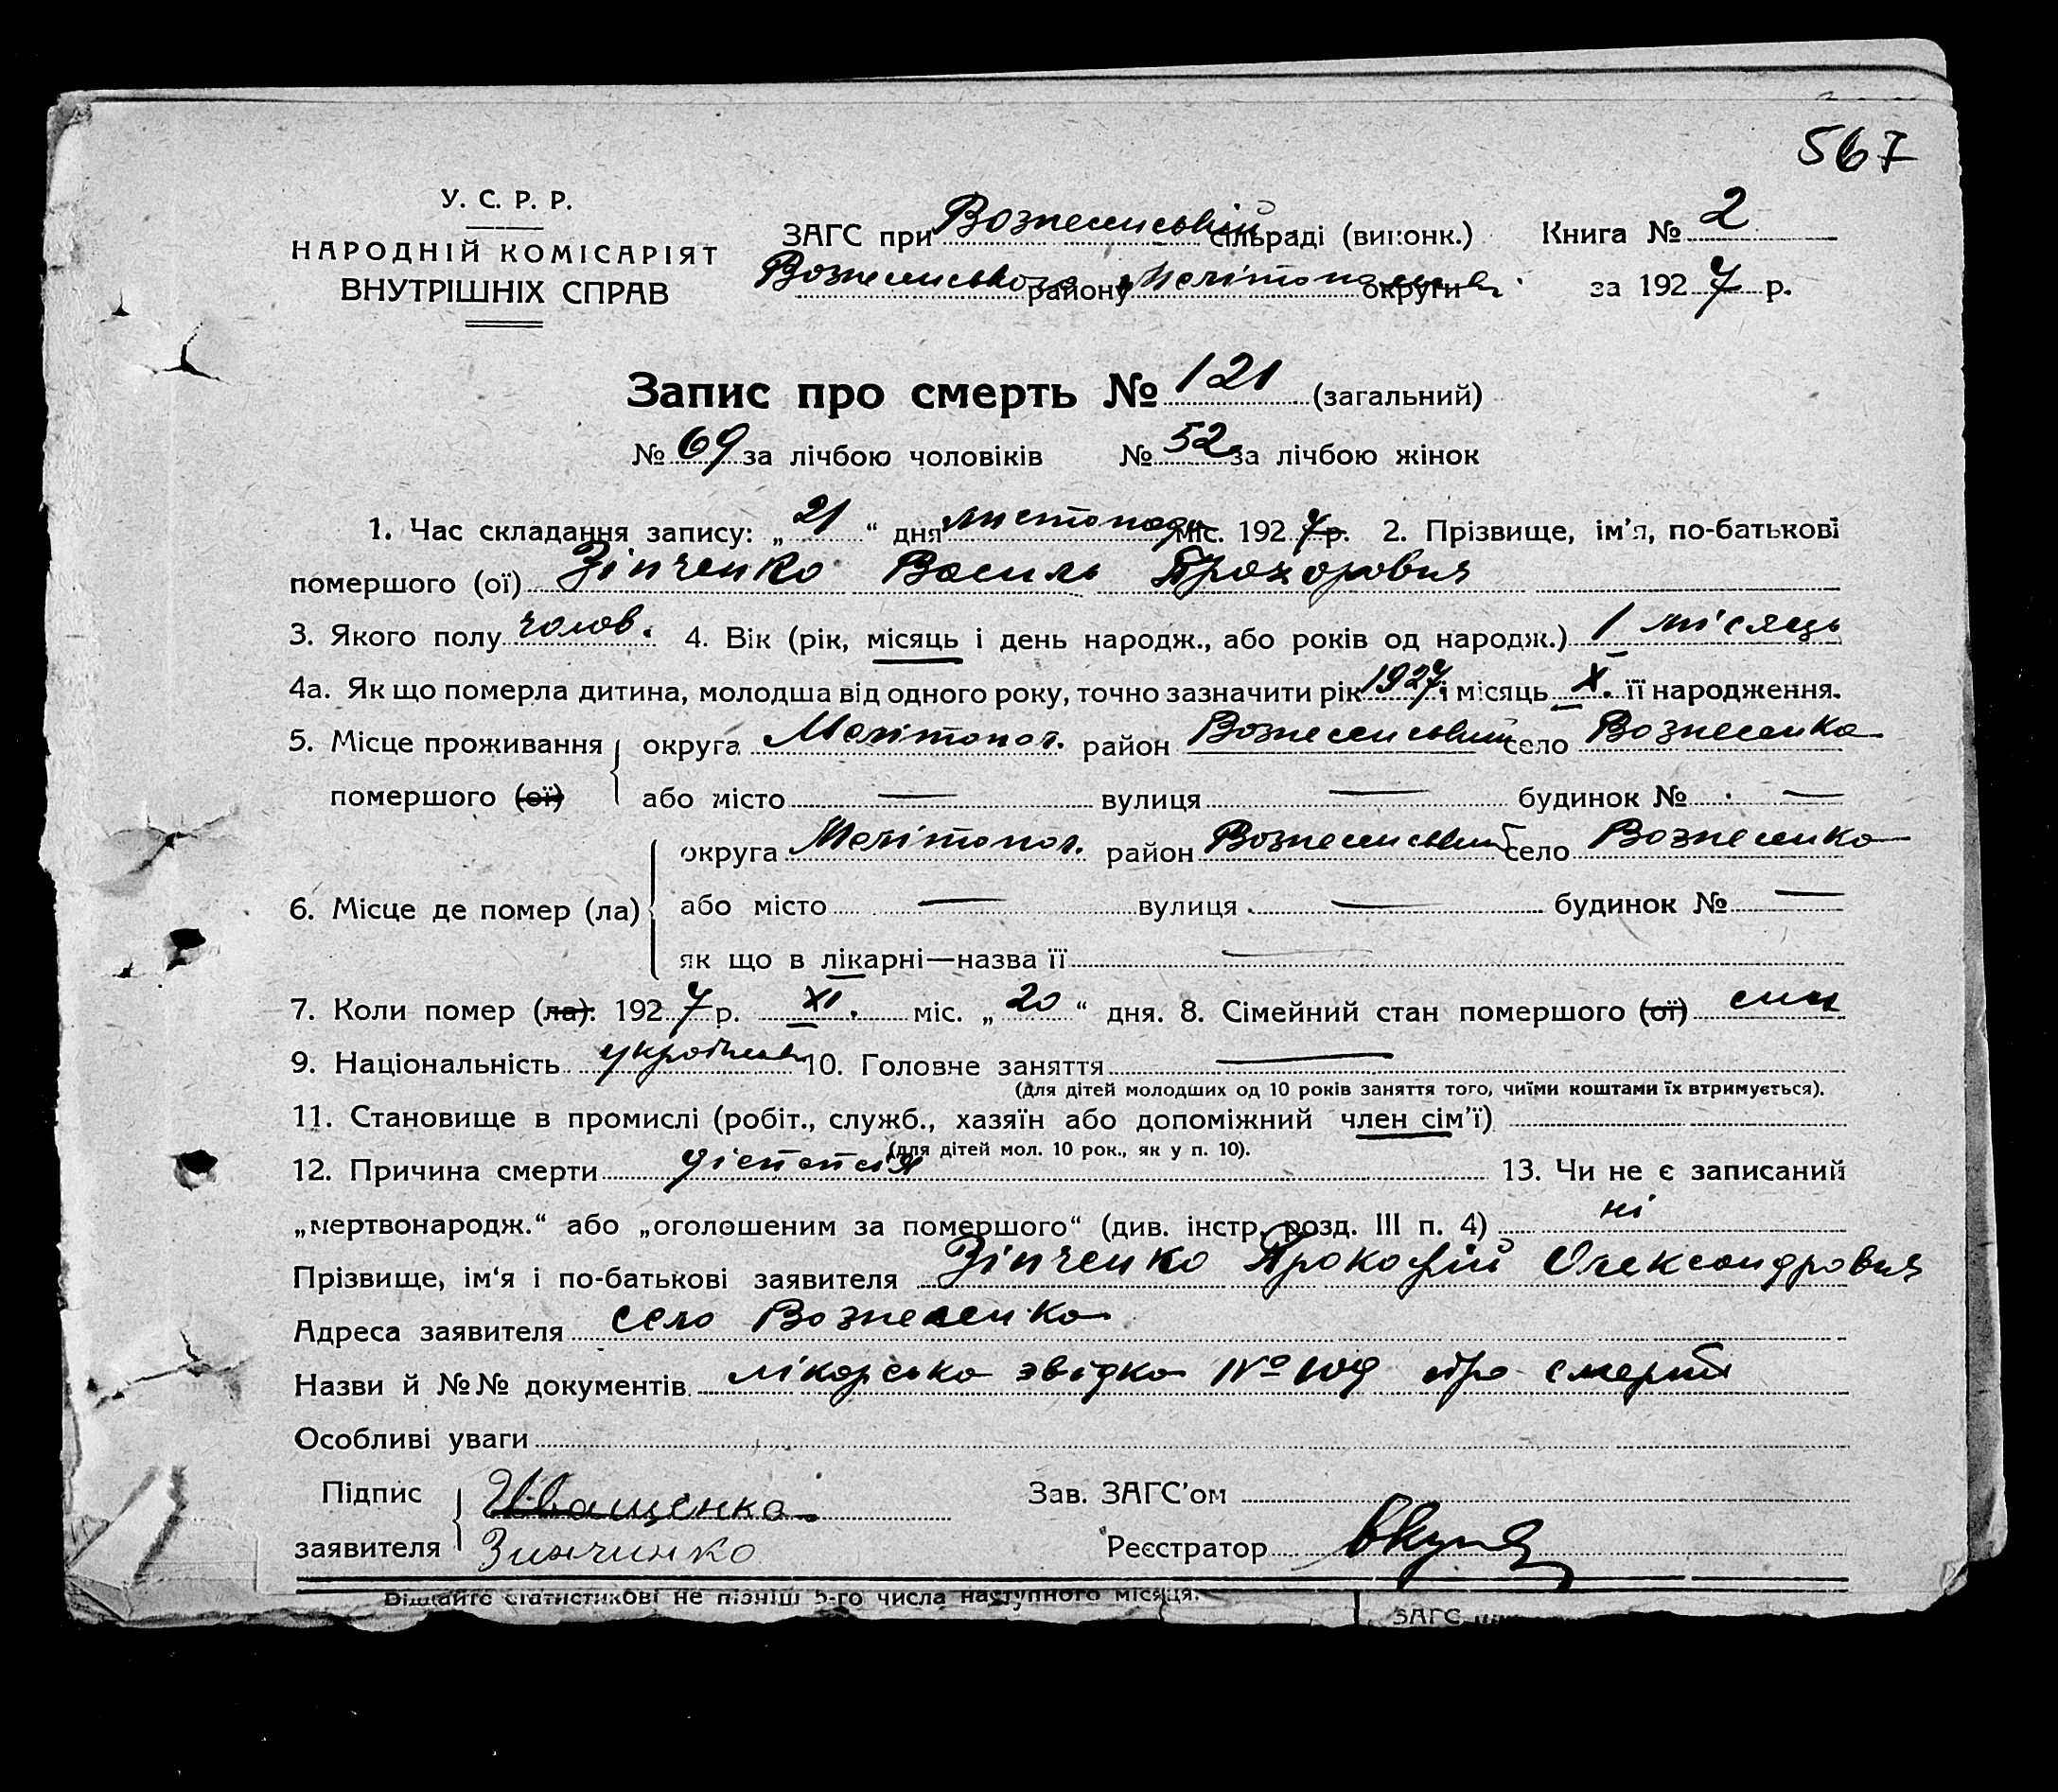 567
У. С. Р. Р.
НАРОДНІЙ КОМІСАРІЯТ
ВНУТРІШНІХ СПРАВ
ЗАГС при Вознесенській сільраді (виконк.) Книга № 2
Вознесенського району Мелітопольської округи за 1927 р.
Запис про смерть № 121 (загальний)
№ 69 за лічбою чоловіків № 52 за лічбою жінок
1. Час складання запису: „ 21 “ дня листопада міс. 1927 р. 2. Прізвище, ім’я, по-батькові
помершого (ої) Зінченко Василь Прохорович
3. Якого полу чолов. 4. Вік (рік, місяць і день народж., або років од народж.) 1 місяць
4а. Як що померла дитина, молодша від одного року, точно зазначити рік 1927 і місяць X. її народження.
5. Місце проживання округа Мелітопол. район Вознесенський село Вознесенка
помершого (ої) або місто — вулиця — будинок № —
округа Мелітопол. район Вознесенський село Вознесенка
6. Місце де помер (ла) або місто — вулиця — будинок № —
як що в лікарні—назва її —
7. Коли помер (ла): 1927 р. XI. міс. „ 20 “ дня. 8. Сімейний стан помершого (ої) син
9. Національність 10. Головне заняття —
(для дітей молодших од 10 років заняття того, чиїми коштами їх втримується).
11. Становище в промислі (робіт., служб., хазяїн або допоміжний член сім’ї)
(для дітей мол. 10 рок., як у п. 10).
12. Причина смерти діспепсія 13. Чи не є записаний
„мертвонародж.“ або „оголошеним за помершого“ (див. інстр. розд. III п. 4) ні
Прізвище, ім‘я і по-батькові заявителя Зінченко Прокофій Олександрович
Адреса заявителя село Вознесенка
Назви й №№ документів лікарська звідка № 109 про смерть
Особливі уваги
Підпис Иващенко Зав. ЗАГС’ом
заявителя Зинчинко Реєстратор
Віддайте статистикові не пізніш 5-го числа наступного місяця.
ЗАГС